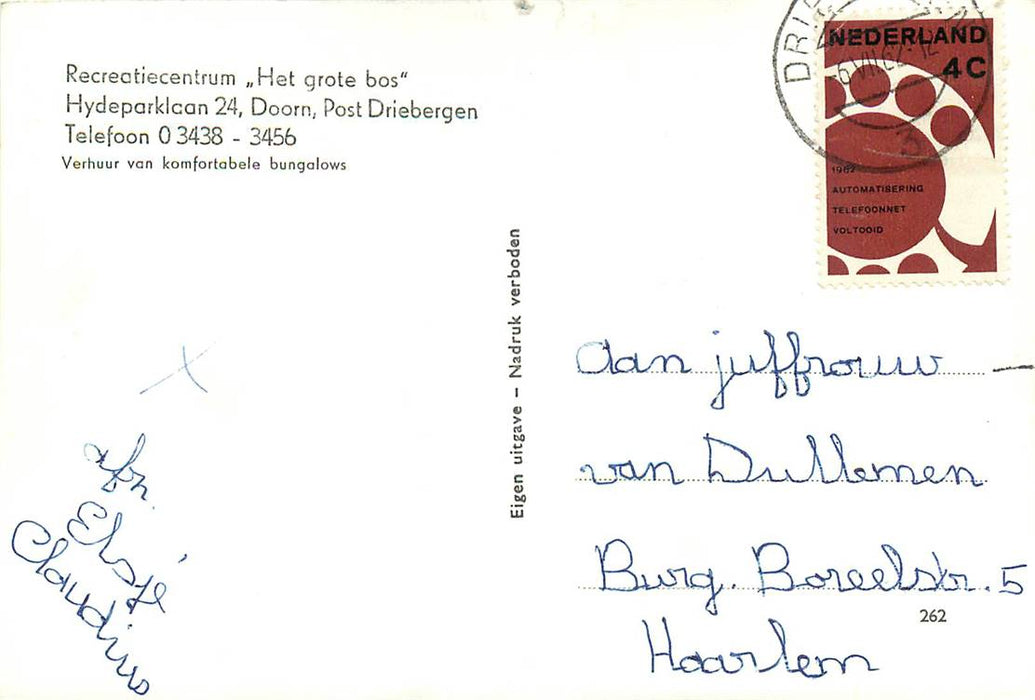 Recreatiecentrum „Het grote bos"
Hydeparklaan 24, Doorn, Post Driebergen
Telefoon 0 3438 - 3456
Verhuur van komfortabele bungalows
afz.
Elsje
Eigen uitgave – Nadruk verboden
NEDERLAND
4C
1962
AUTOMATISERING
TELEFOONNET
VOLTOOID
Aan juffrouw
van Dullemen
Burg. Boreelstr. 5
262
Haarlem